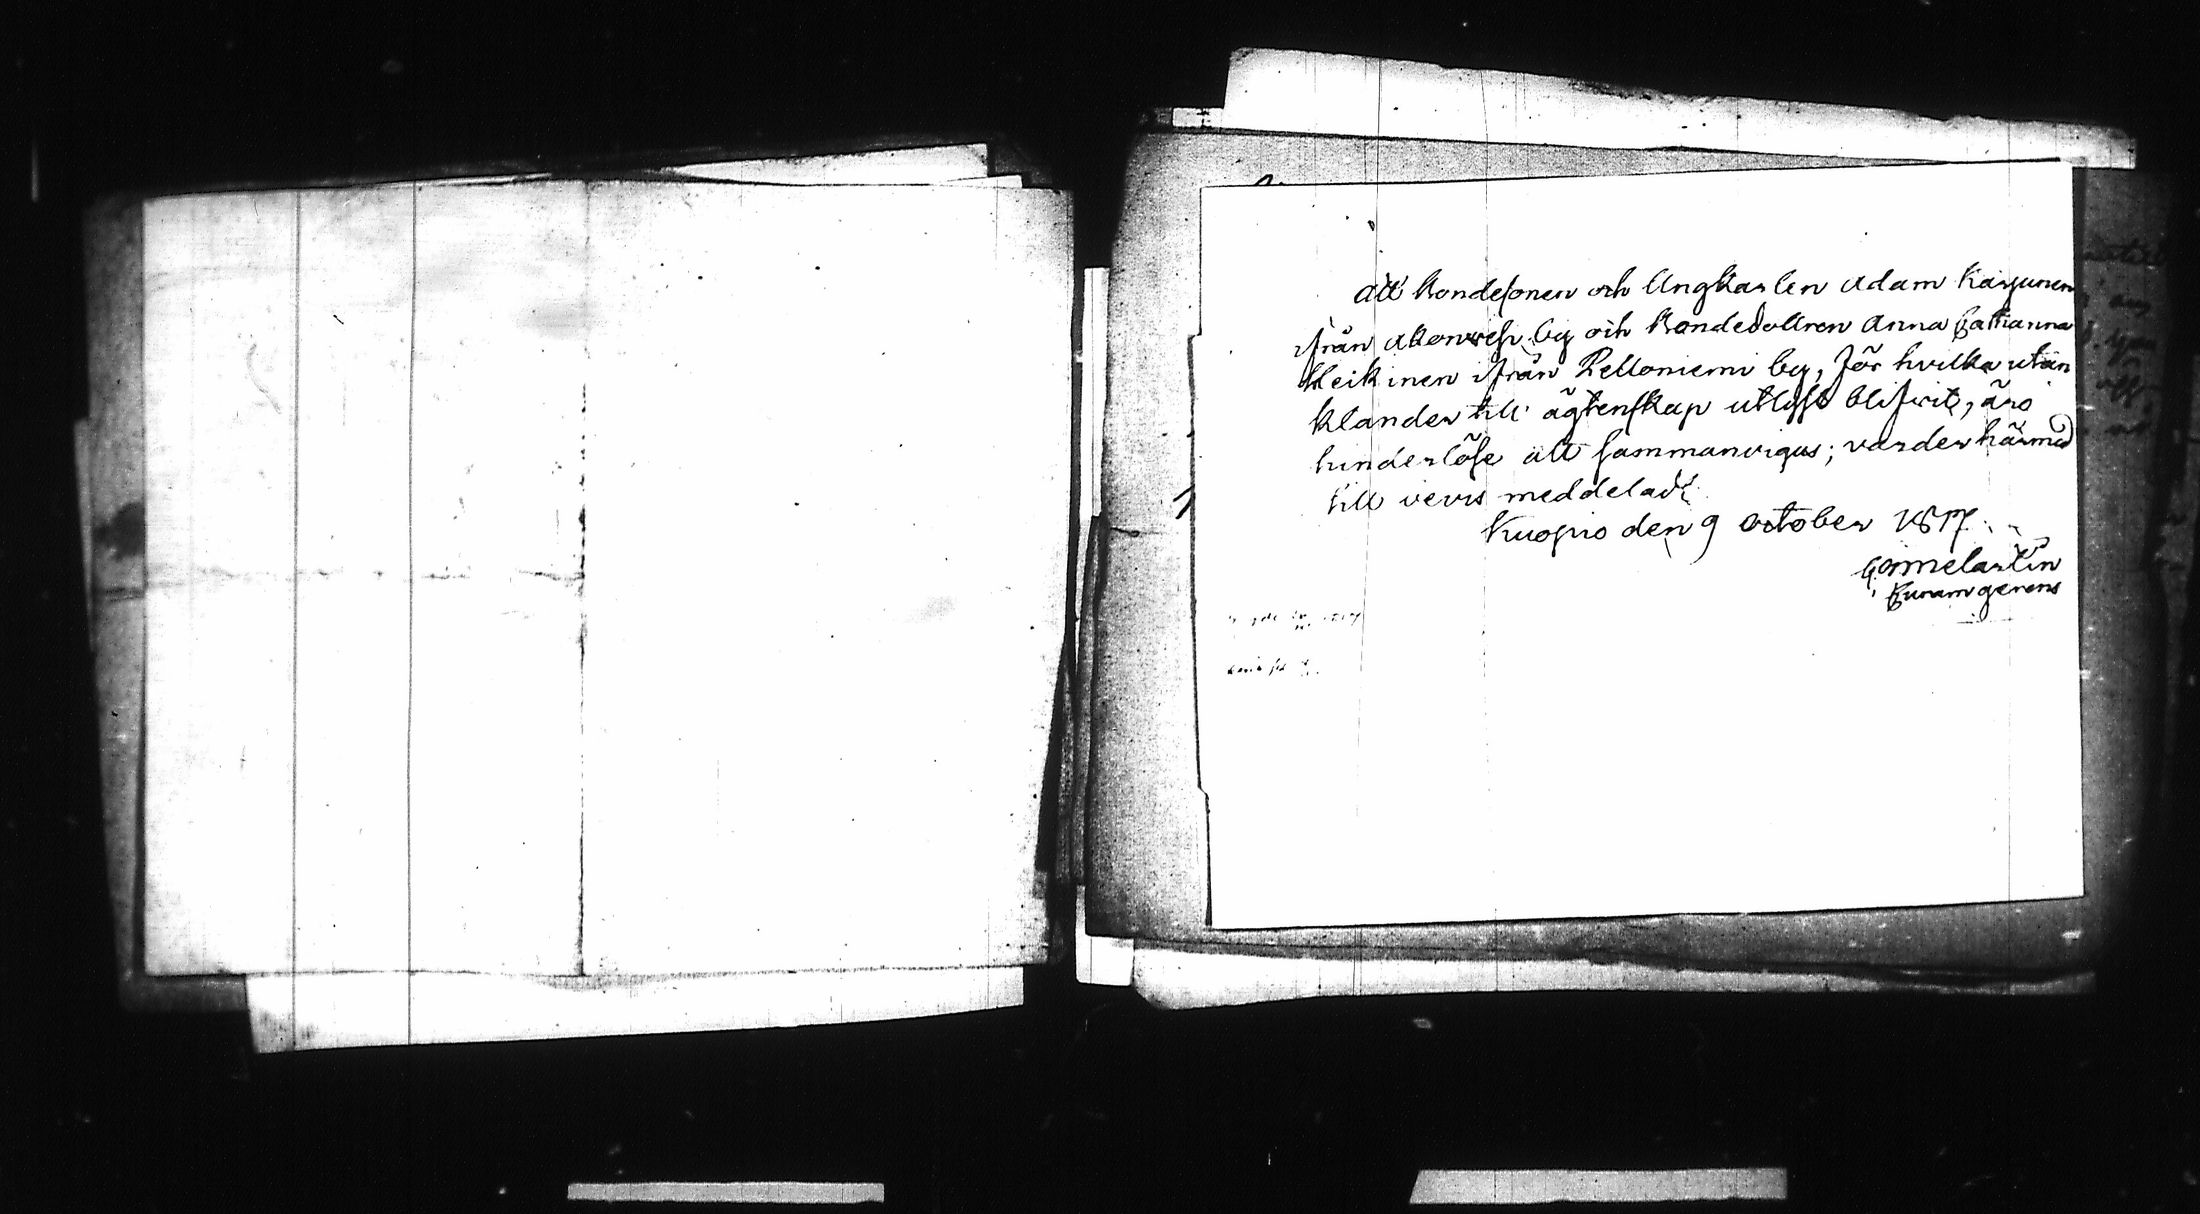 att Bondesonen och Ungkarlen Adam Karjunen
ifrån Akonvesi by och Bondedottren Anna Catharina
Heikinen ifrån Pelloniemi by, för hvilka utan
klander till ägtenskap utlyst blifvit, äro
hinderlöse att sammanvigas; varder härmed
till vevis meddeladt.
Kuopio den 9 october 1817.